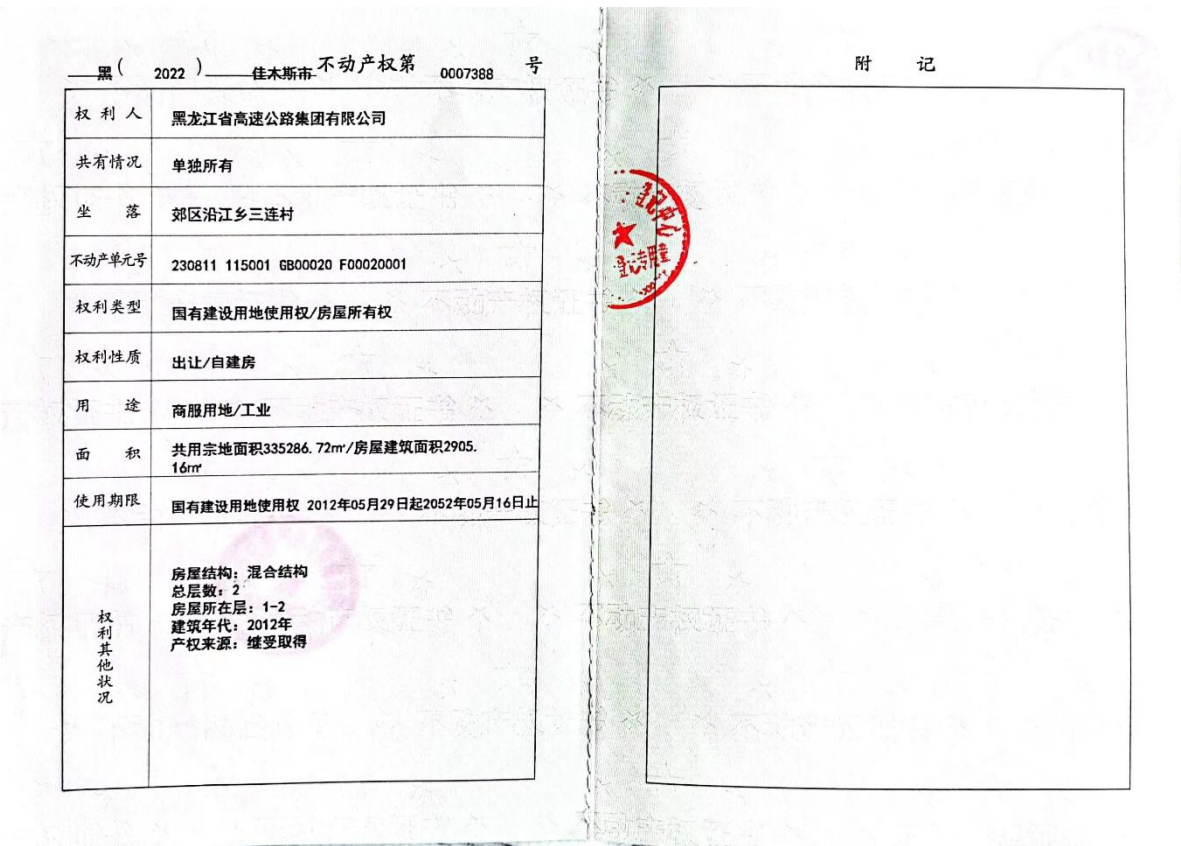 黑( 2022 ) 佳木斯市 不动产权第 0007388 号
权利人 黑龙江省高速公路集团有限公司
共有情况 单独所有
坐落 郊区沿江乡三连村
不动产单元号 230811 115001 GB00020 F00020001
权利类型 国有建设用地使用权/房屋所有权
权利性质 出让/自建房
用途 商服用地/工业
面积 共用宗地面积335286.72㎡/房屋建筑面积2905.
16㎡
使用期限 国有建设用地使用权 2012年05月29日起2052年05月16日止
权利其他状况
房屋结构：混合结构
总层数：2
房屋所在层：1-2
建筑年代：2012年
产权来源：继受取得
附记
登记中心
登记专用章